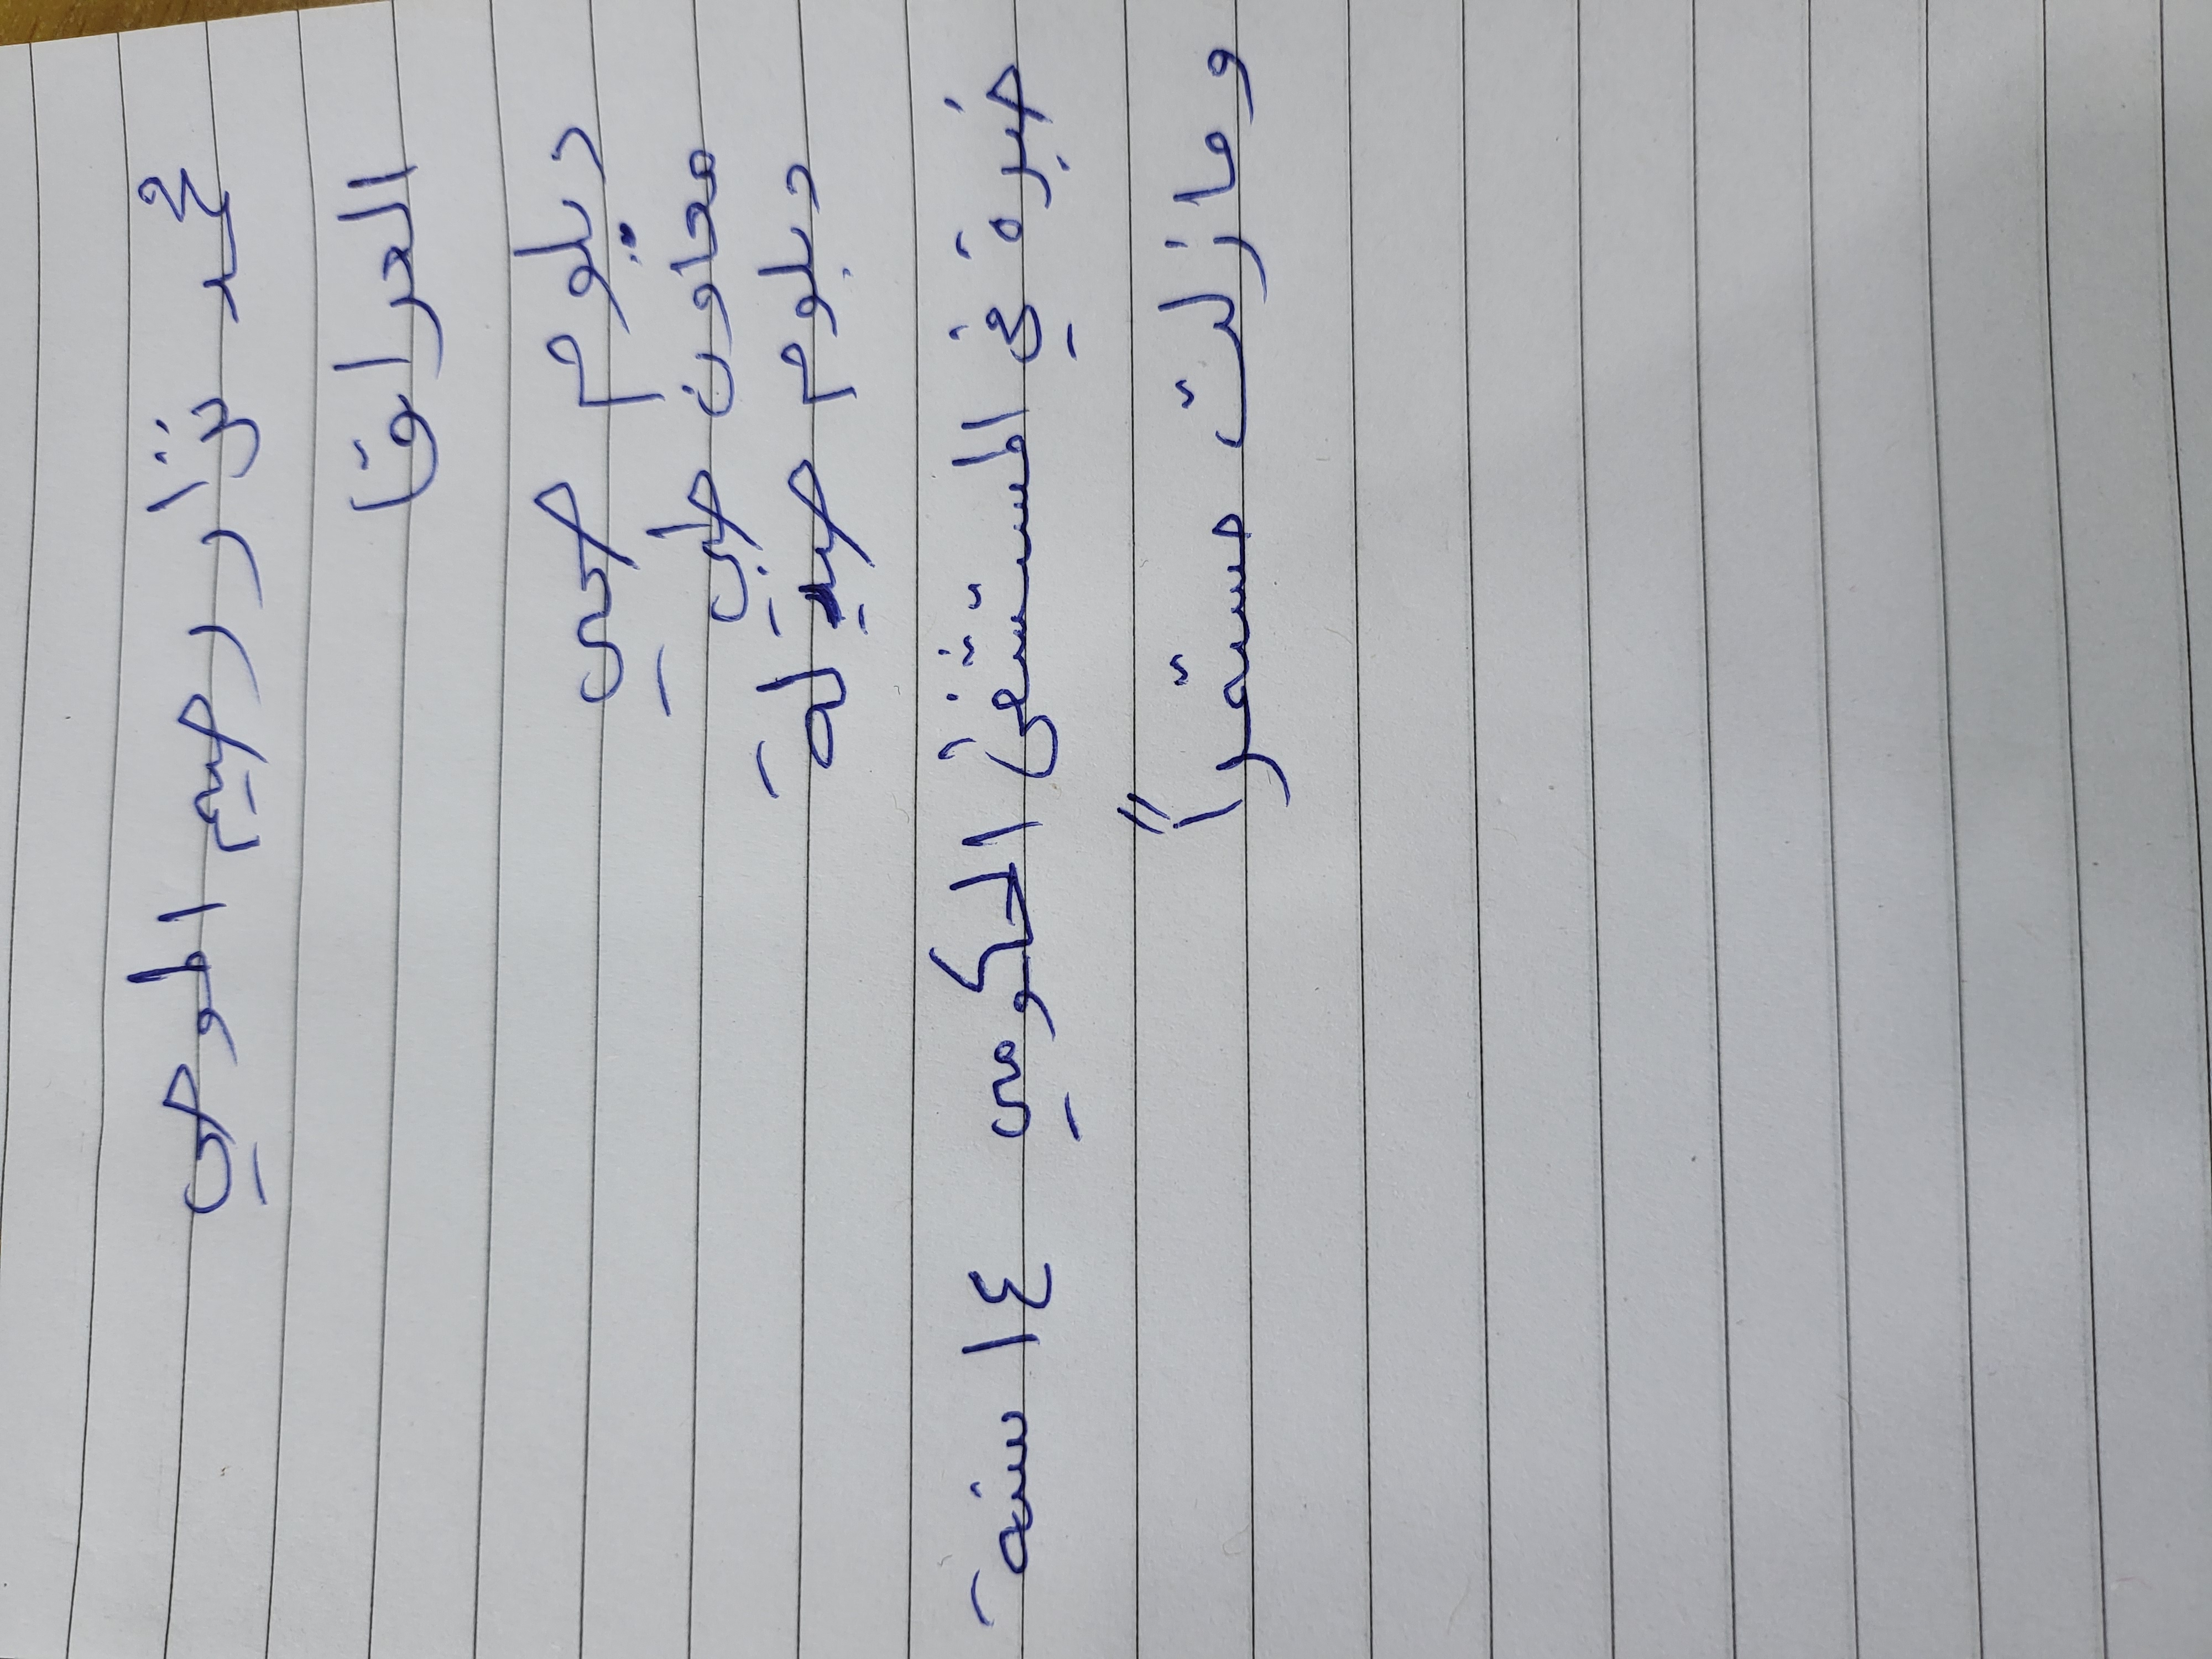 محمد نزار رحيم الموحي
العراق
دبلوم صحي
معاون طبي
دبلوم صيدلة
خبرة في المستشفى الحكومي ١٤ سنة
وما زلت مستمراً